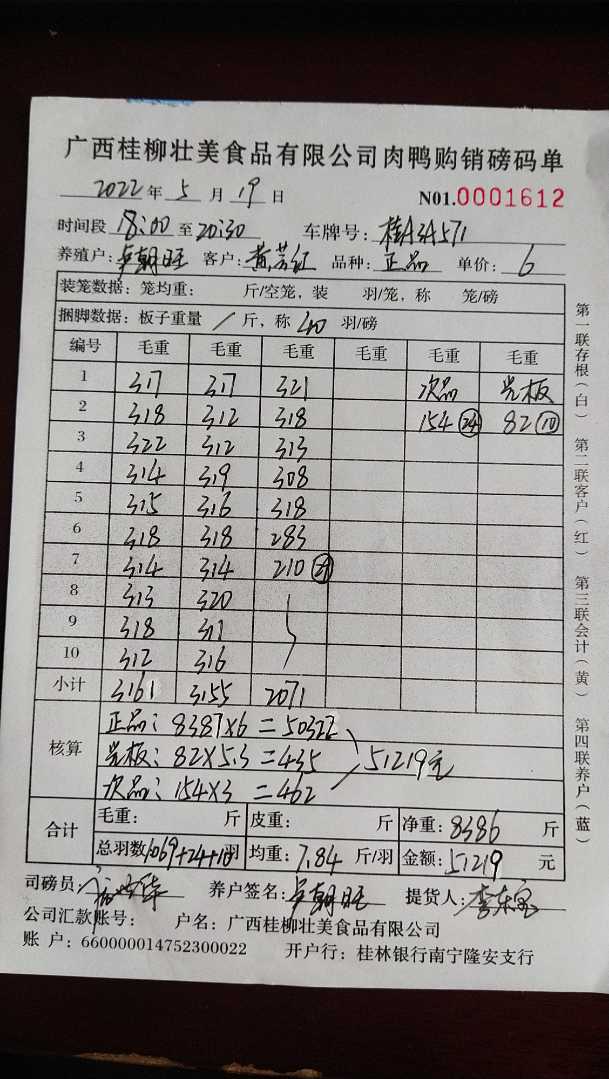 广西桂柳壮美食品有限公司肉鸭购销磅码单
2022年5月19日 N01.0001612
时间段 18:00 至 20:30 车牌号: 桂A3A571
养殖户: 卓朝旺 客户: 黄芳红 品种: 正品 单价: 6
装笼数据: 笼均重: 斤/空笼, 装 羽/笼, 称 笼/磅
捆脚数据: 板子重量 / 斤, 称 40 羽/磅
编号 毛重 毛重 毛重 毛重 毛重 毛重
1 317 317 321 次品 光板
2 318 312 318 154 24 82 10
3 322 312 313
4 314 319 308
5 315 316 318
6 318 318 283
7 314 314 210
8 313 320
9 318 311
10 312 316
小计 3161 3155 2071
核算 正品: 8387×6=50322
光板: 82×5.3=435 51219元
次品: 154×3=462
合计 毛重: 斤 皮重: 斤 净重: 8386 斤
总羽数 1069+24+10羽 均重: 7.84 斤/羽 金额: 51219 元
司磅员: 养户签名: 卓朝旺 提货人: 李东
公司汇款账号: 户名: 广西桂柳壮美食品有限公司
账 户: 660000014752300022 开户行: 桂林银行南宁隆安支行
第一联存根(白) 第二联客户(红) 第三联会计(黄) 第四联养户(蓝)